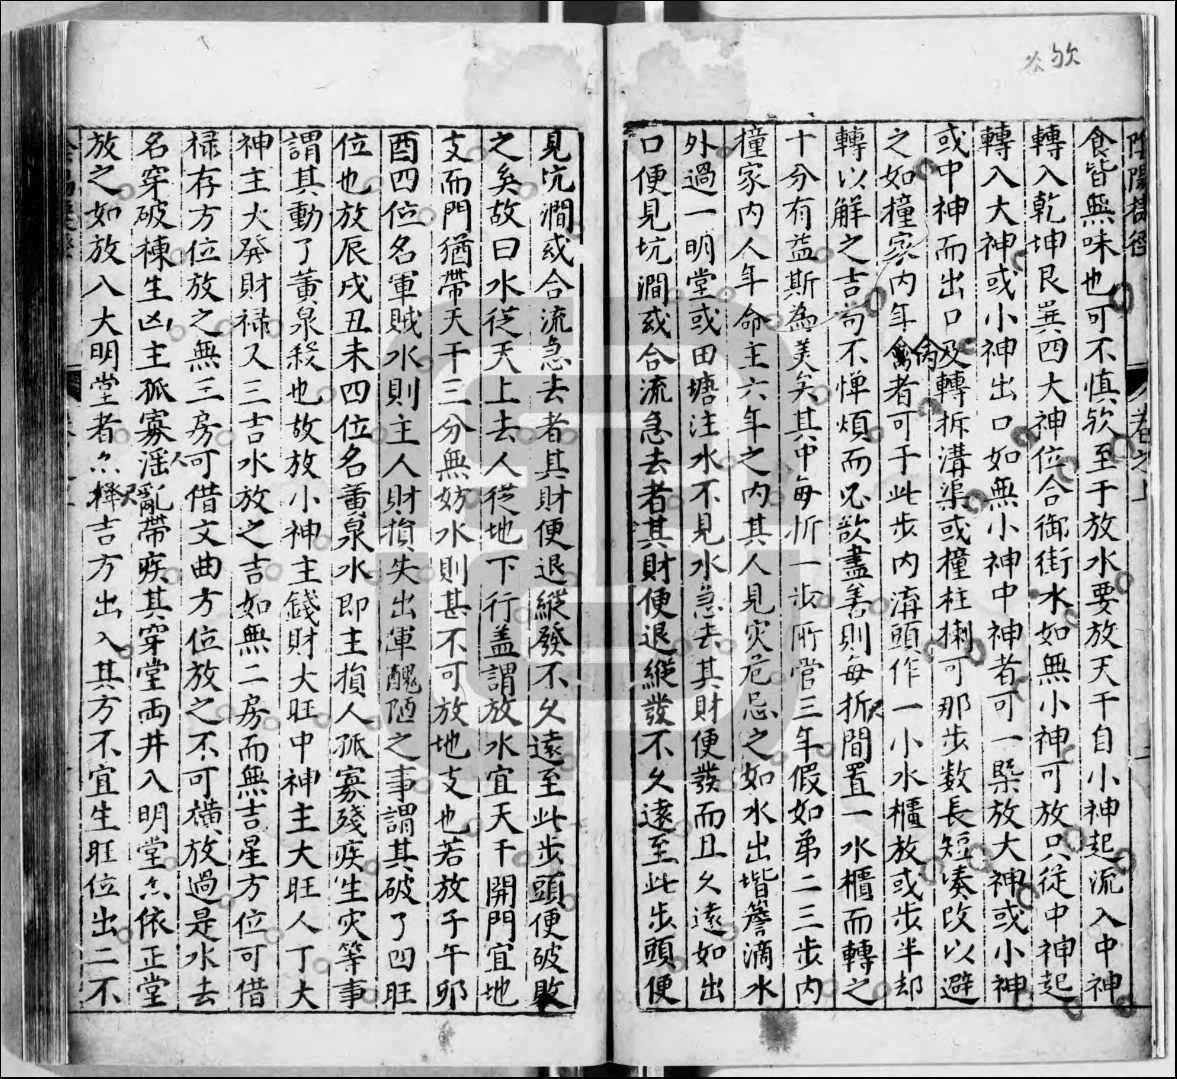 欤
食皆無味也可不慎欤至于放水要放天干自小神起流入中神
轉入乾坤艮巽四大神位合御街水如無小神可放只從中神起
轉入大神或小神出口如無小神中神者可一槩放大神或小神
或中神而出口及轉拆溝渠或撞柱捌可那步数長短凑改以避
之如撞家内年禽者可于此步内溝頭作一小水櫃放或步半却
轉以觧之吉句不惮煩而必欲盡善則每折間置一水櫃而轉之
十分有益斯為美矣其中每折一步所管三年假如第二三步内
撞家内人年命主六年之内其人見灾危忌之如水出堦簷滴水
外過一明堂或田塘注水不見水急去其財便發而且久遠如出
口便見坑澗或合流急去者其財便退縱發不久遠至此步頭便
見坑澗或合流急去者其財便退縱發不久遠至此步頭便破敗
之矣故曰水從天上去人從地下行盖謂放水宜天干開門宜地
支而門猶帶天干三分無妨水則甚不可放地支也若放子午卯
酉四位名軍賊水則主人財損失出軍醜陋之事謂其破了四旺
位也放辰戌丑未四位名黄泉水即主損人孤寡殘疾生灾等事
謂其動了黄泉殺也故放小神主錢財大旺中神主大旺人丁大
神主大發財禄又三吉水放之吉如無二房而無吉星方位可借
禄存方位放之無三房可借文曲方位放之不可橫放過是水去
名穿破棟生凶主孤寡淫亂帶疾其穿堂兩井入明堂亦依正堂
放之如放八大明堂者亦擇吉方出入其方不宜生旺位出二不